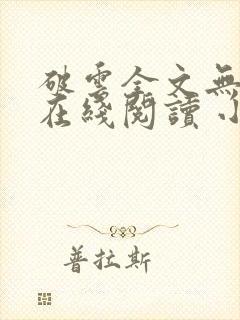 破雲全文無
在綫閱讀
普拉斯